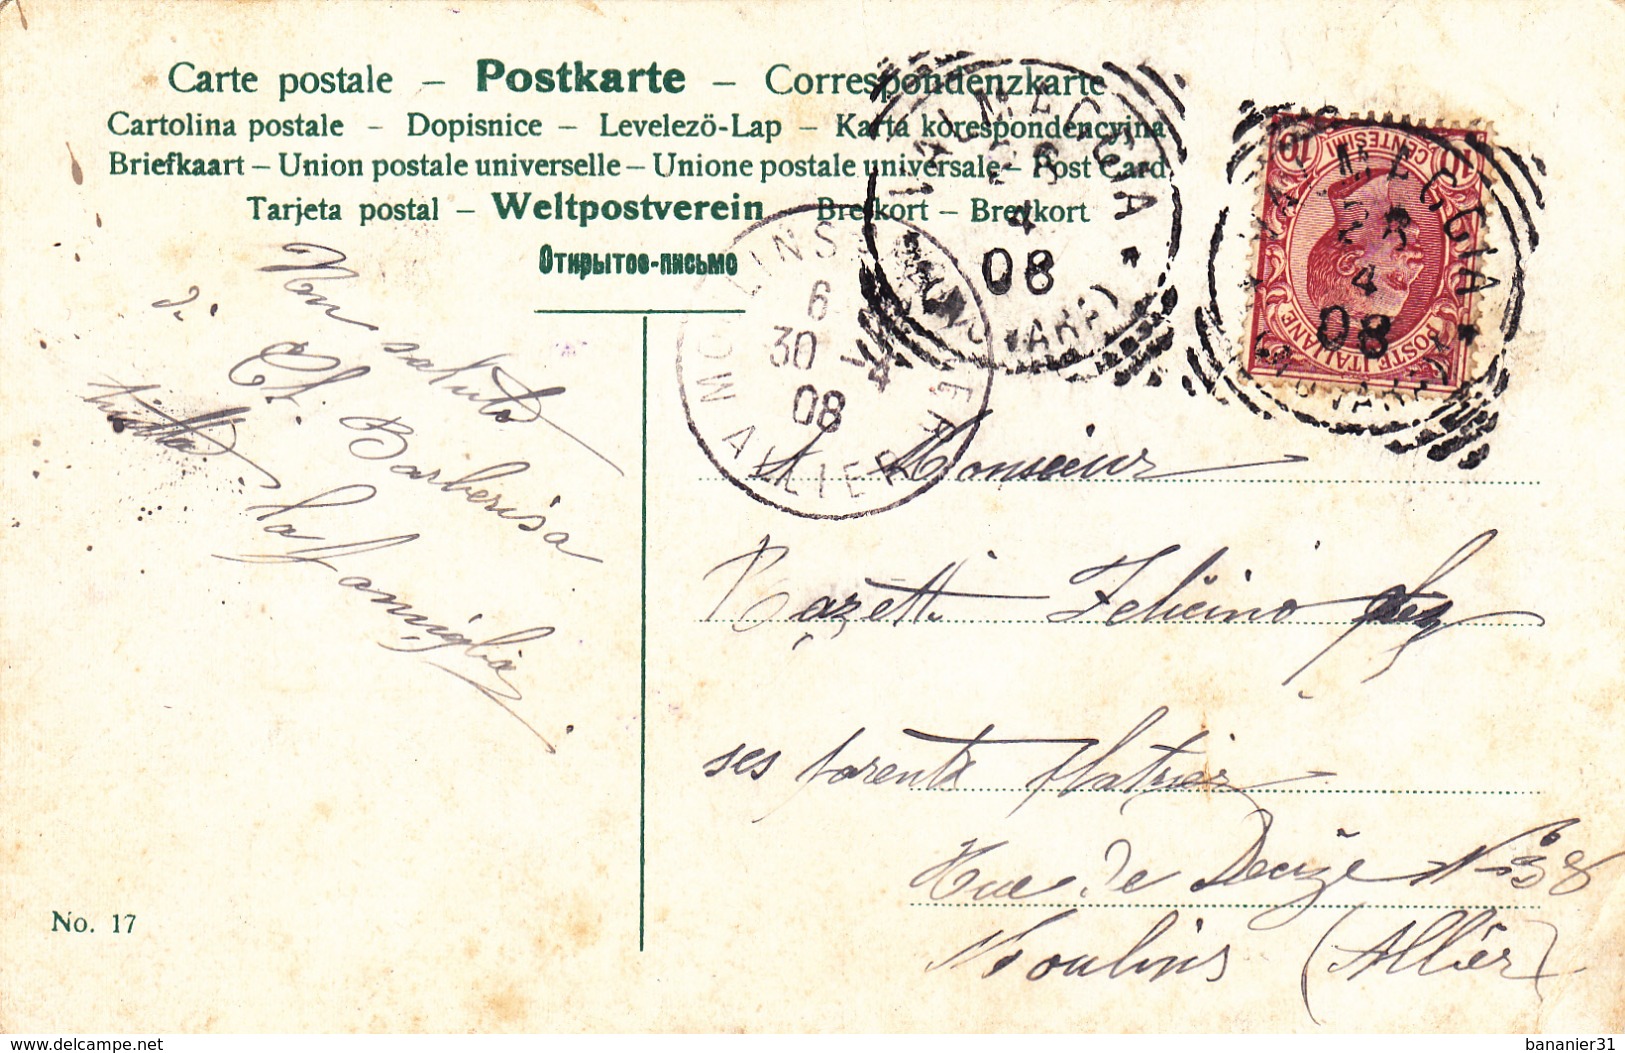 Carte postale – Postkarte – Correspondenzkarte
Cartolina postale – Dopisnice – Levelezö-Lap – Karta korespondencyjna
Briefkaart – Union postale universelle – Unione postale universale – Post Card
Tarjeta postal – Weltpostverein – Brefkort – Brevkort
Открытое-письмо
VALMEGGIA
28
4
08
VALMEGGIA
28
4
08
10 10
CENTESIMI
POSTE ITALIANE
MOULINS
ALLIER
6
30
4
08
saluto
di
Barberisa
tutta la famiglia
A Monsieur
Felicino chez
ses parents
Rue de Decize N° 38
Moulins (Allier)
No. 17
delcampe.net
bananier31